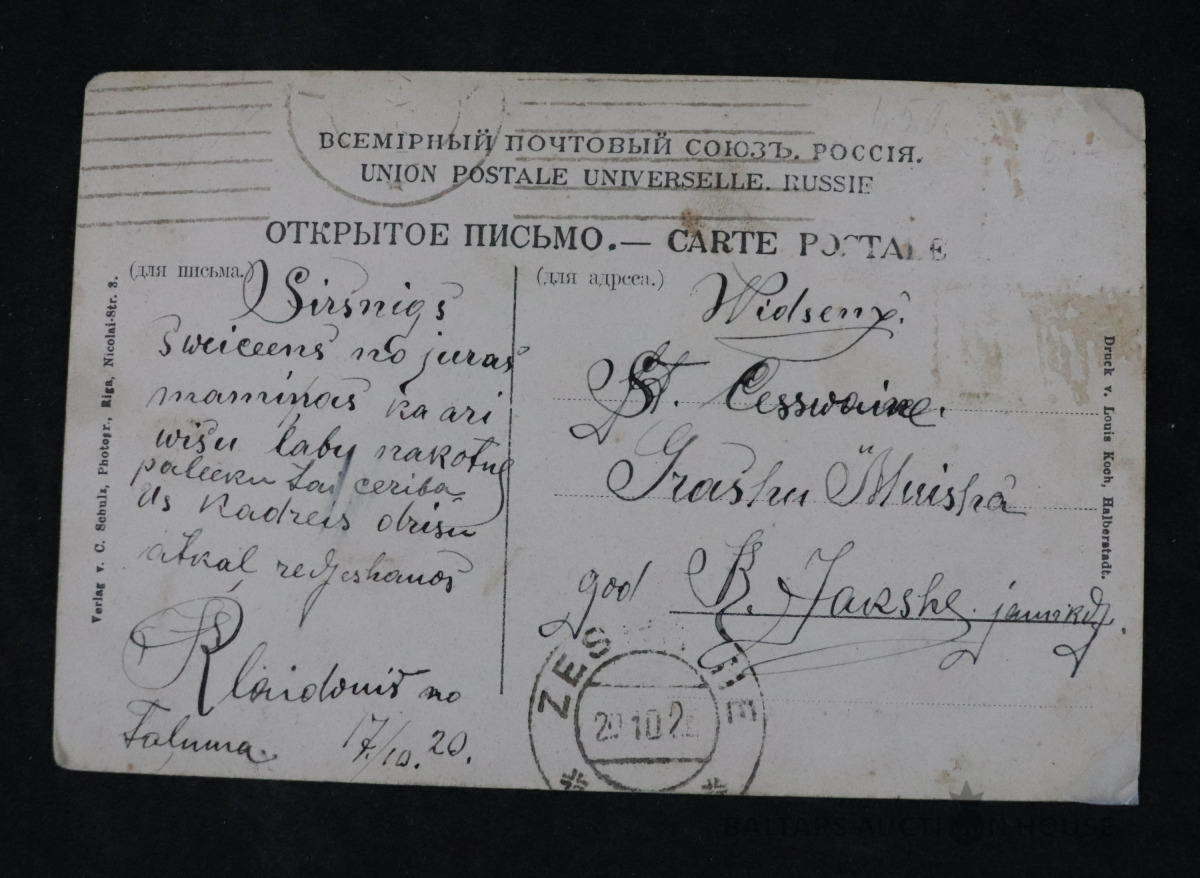 ВСЕМІРНЫЙ ПОЧТОВЫЙ СОЮЗЪ. РОССІЯ.
UNION POSTALE UNIVERSELLE. RUSSIE
ОТКРЫТОЕ ПИСЬМО.— CARTE POSTALE
(для письма.)
Sirsnigs
sweiceens no juras
mamiņas ka ari
wisu labu nakotne
paleeku tai ceriba
us kadreis drisu
atkal redseshanos
Klaidonis no
17/10. 20.
(для адреса.)
St. Cesswaine.
Grashu Muishā
god K. Jakshe
ZES
20 10 2
Verlag v. C. Schulz, Photogr., Riga, Nicolai-Str. 3.
Druck v. Louis Koch, Halberstadt.
BALTARS AUCTION HOUSE